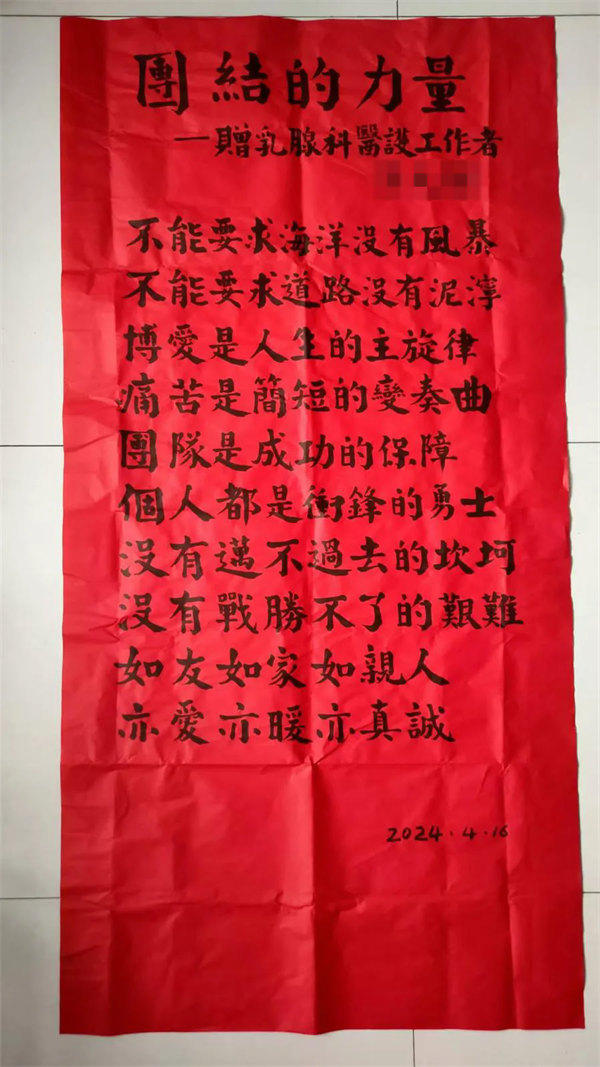 團結的力量
一贈乳腺科醫護工作者
不能要求海洋没有風暴
不能要求道路没有泥濘
博愛是人生的主旋律
痛苦是簡短的變奏曲
團隊是成功的保障
個人都是衝鋒的勇士
没有邁不過去的坎坷
没有戰勝不了的艱難
如友如家如親人
亦愛亦暖亦真誠
2024.4.16